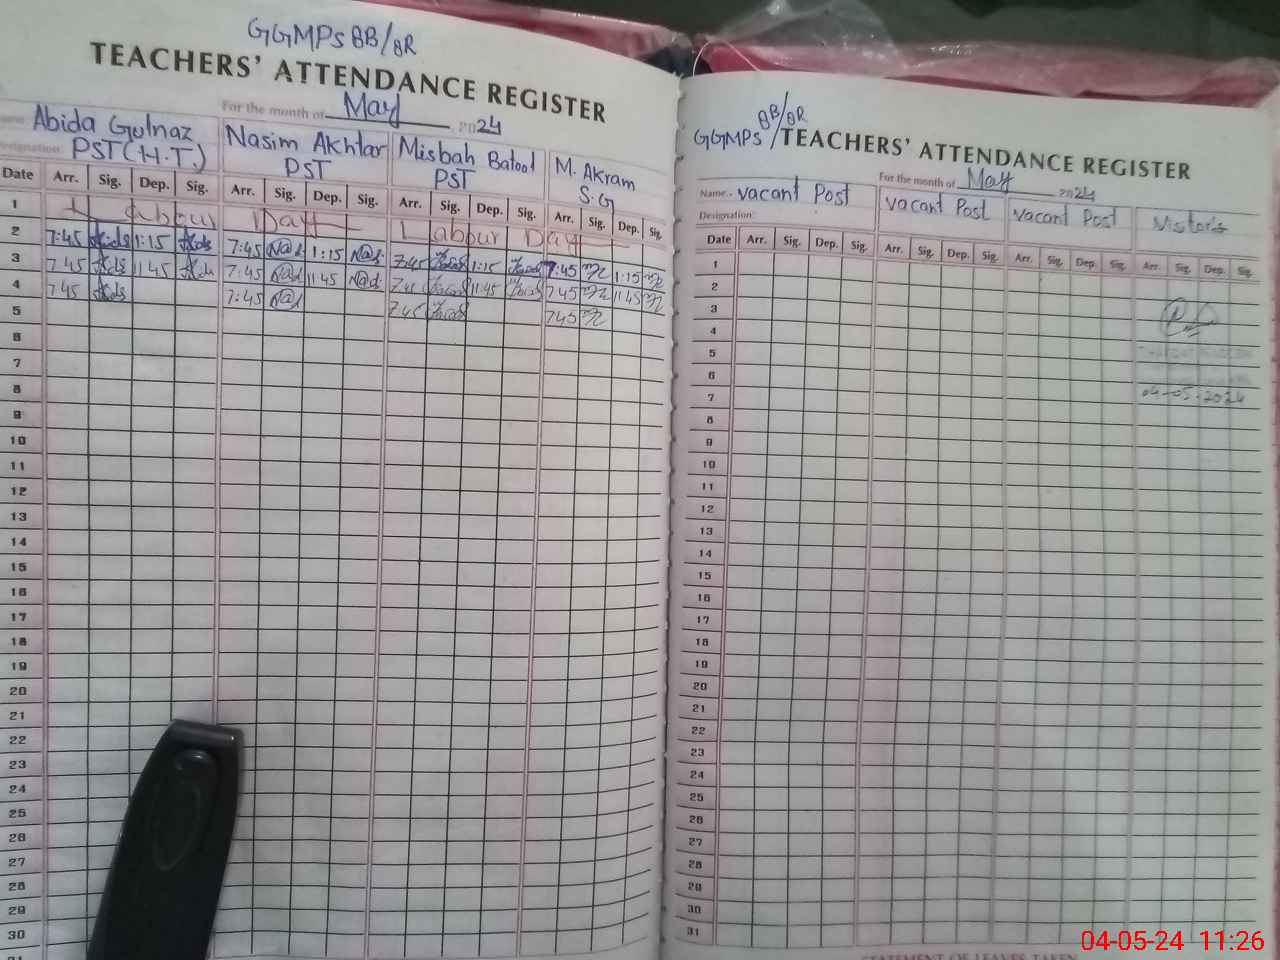 GGMPS 8B/8R
TEACHERS' ATTENDANCE REGISTER
For the month of May 2024
Name: Abida Gulnaz Nasim Akhtar Misbah Batool M. Akram
Designation: PST (H.T.) PST PST S.G
Date Arr. Sig. Dep. Sig. Arr. Sig. Dep. Sig. Arr. Sig. Dep. Sig. Arr. Sig. Dep. Sig.
1 Labour Day Labour Day
2 7:45 1:15 7:45 1:15 7:45 1:15 7:45 1:15
3 7 45 11 45 7:45 11:45 7 45 11:45 7 45 11 45
4 7 45 7:45 7 45 7 45
5
6
7
8
9
10
11
12
13
14
15
16
17
18
19
20
21
22
23
24
25
26
27
28
29
30
31
GGMPS 8B/8R
TEACHERS' ATTENDANCE REGISTER
For the month of May 2024
Name: vacant Post vacant Post vacant Post Vistors
Designation:
Date Arr. Sig. Dep. Sig. Arr. Sig. Dep. Sig. Arr. Sig. Dep. Sig. Arr. Sig. Dep. Sig.
1
2
3
4
5
6
7 04-05-2024
8
9
10
11
12
13
14
15
16
17
18
19
20
21
22
23
24
25
26
27
28
29
30
31
STATEMENT OF LEAVES TAKEN
04-05-24 11:26